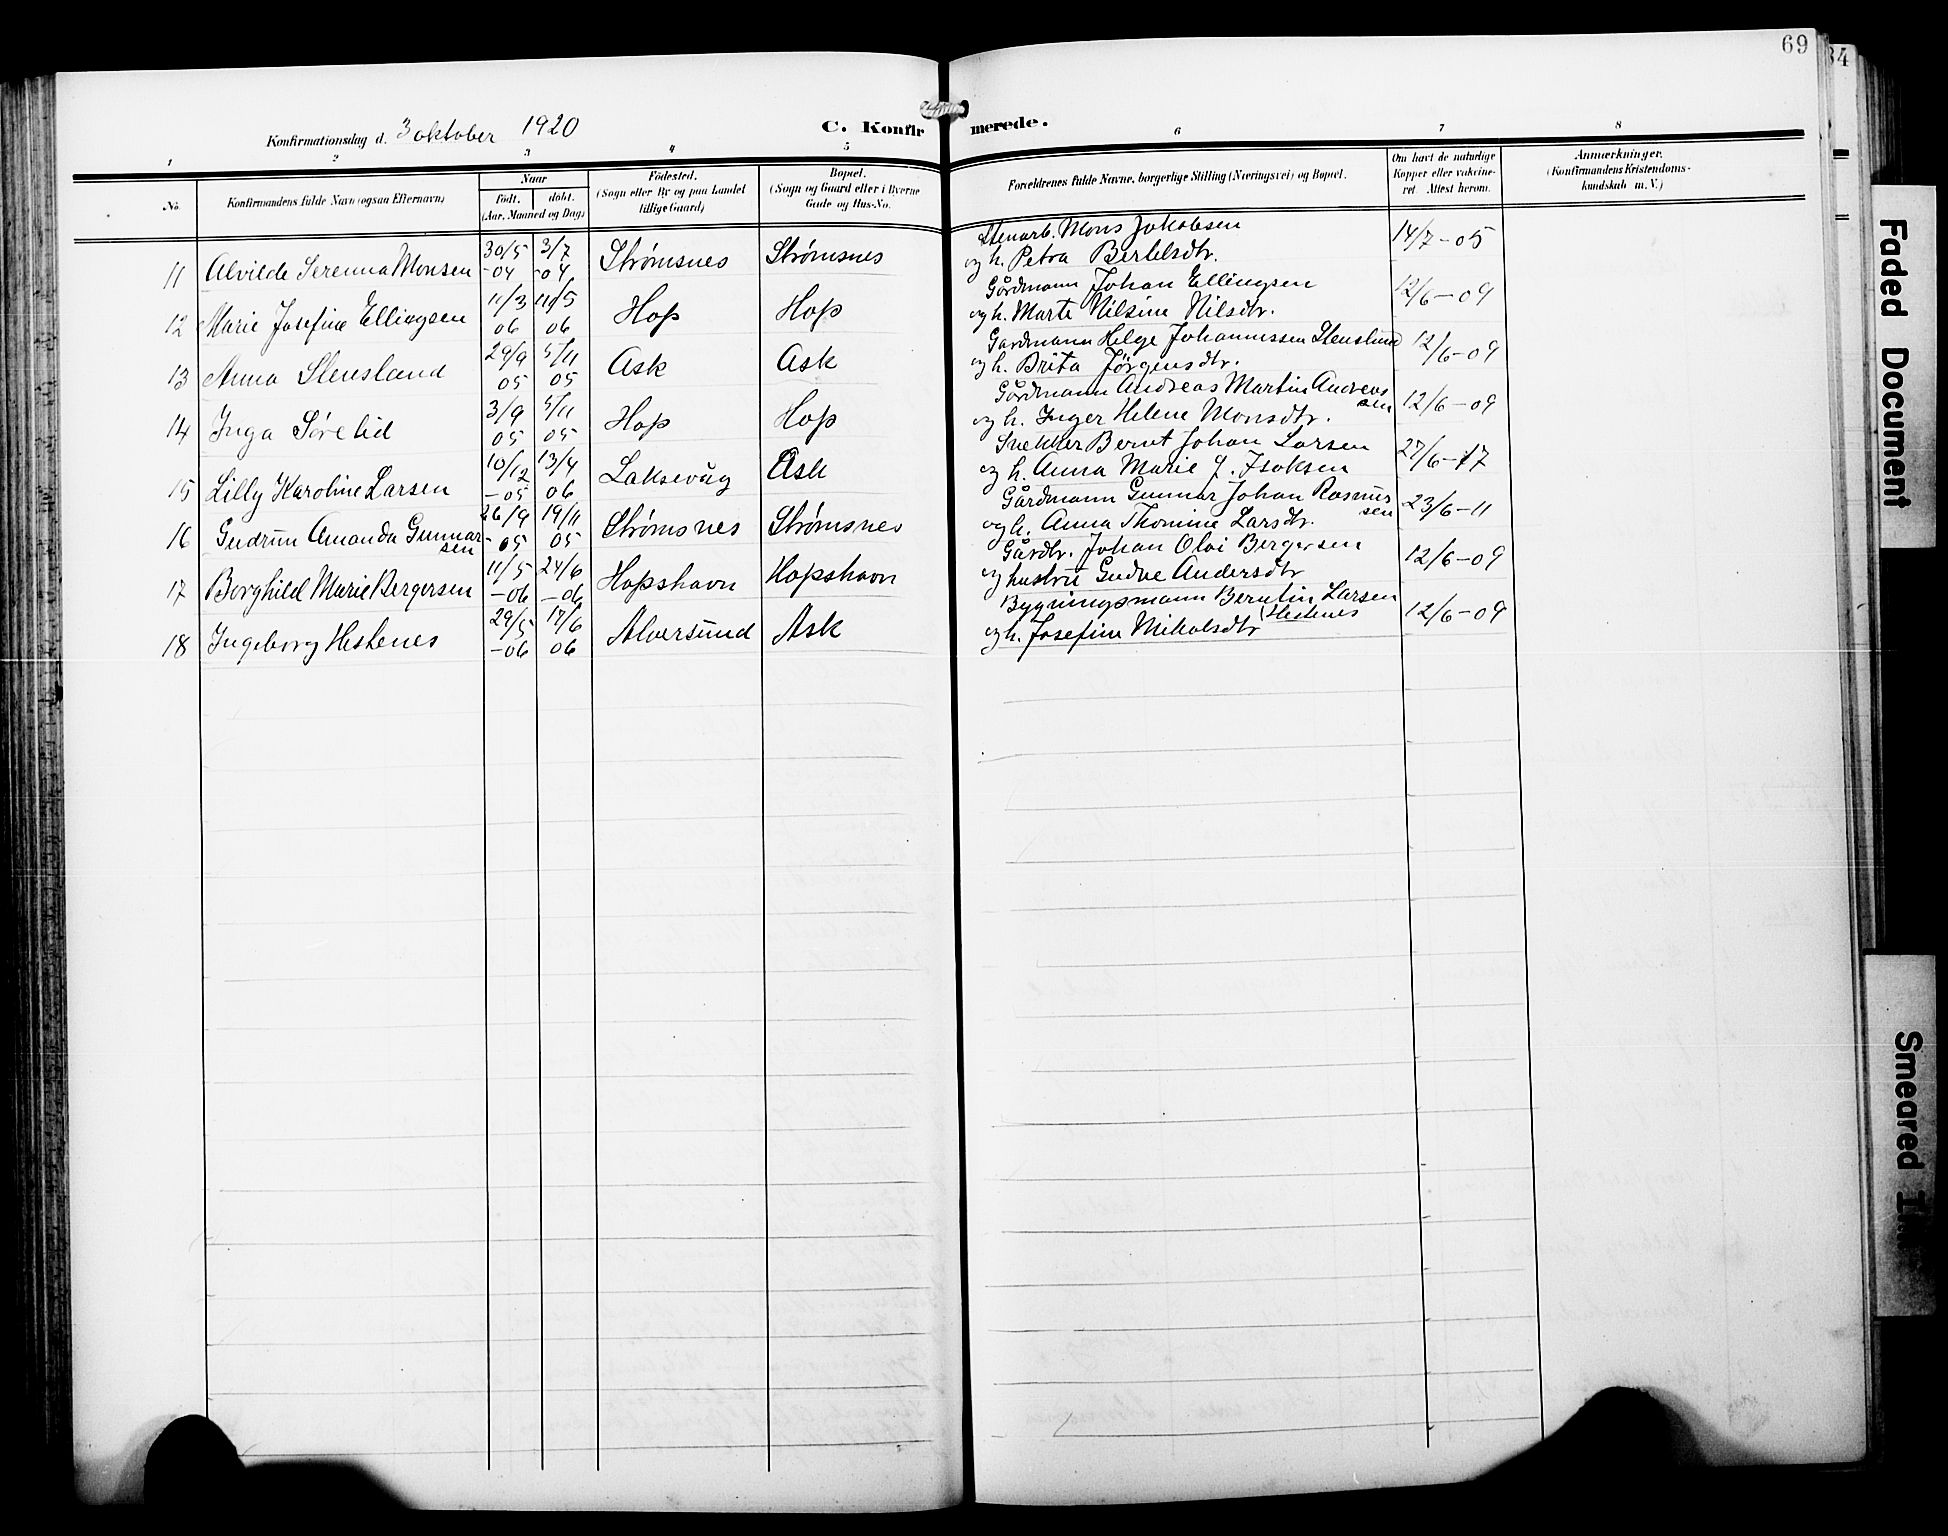 69
84
Konfirmationsdag d. 3 oktober 1920
C. Konfirmerede.
1 2 3 4 5 6 7 8
No.
Konfirmandens fulde Navn (ogsaa Efternavn)
Naar
født. døbt.
(Aar, Maaned og Dag)
Fødested.
(Sogn eller By og paa Landet
tillige Gaard)
Bopæl.
(Sogn og Gaard eller i Byerne
Gade og Hus-No.
Forældrenes fulde Navne, borgerlige Stilling (Næringsvei) og Bopæl.
Om havt de naturlige
Kopper eller vaccine-
ret. Attest herom.
Anmærkninger.
(Konfirmandens Kristendoms-
kundskab m. V.)
11 Alvilde Serenna Monsen 30/5 -04 3/7 -04 Strømsnes Strømsnes
Stenarb. Mons Jakobsen
og h. Petra Bertelsdtr. 14/7-05
12 Marie Josefine Ellingsen 11/3 06 11/5 06 Hop Hop
Gårdmann Johan Ellingsen
og h. Marte Nilsine Nilsdtr. 12/6-09
13 Anna Stensland 29/9 05 5/11 05 Ask Ask
Gardmann Helge Johannessen Stensland
og h. Brita Jørgensdtr. 12/6-09
14 Inga Sørelid 3/9 05 5/11 05 Hop Hop
Gårdmann Andreas Martin Andreas
sen
og h. Inger Helene Monsdtr. 12/6-09
15 Lilly Karoline Larsen 10/12 -05 13/4 06 Laksevåg Ask
Snekker Bernt Johan Larsen
og h. Anna Marie J. Isaksen 27/6-17
16 Gudrun Amanda Gunnar
sen 26/9 -05 19/11 05 Strømsnes Strømsnes
Gårdmann Gunnar Johan Rasmus
sen
og h. Anna Thomine Larsdtr. 23/6-11
17 Borghild Marie Bergersen 11/5 -06 24/6 -06 Hopshavn Hopshavn
Gårdbr. Johan Olai Bergersen
og hustru Gudve Andersdtr 12/6-09
18 Ingeborg Hestenes 29/5 -06 17/6 06 Alversund Ask
Bygningsmann Berntin Larsen
Hestenes
og h. Josefine Mikalsdtr 12/6-09
Faded Document
Smeared